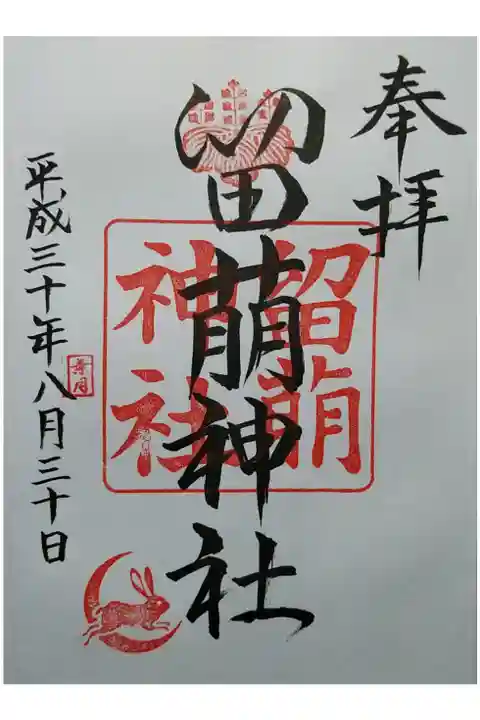 奉拝
留萌神社
留萌
神社
平成三十年八月三十日
葉月